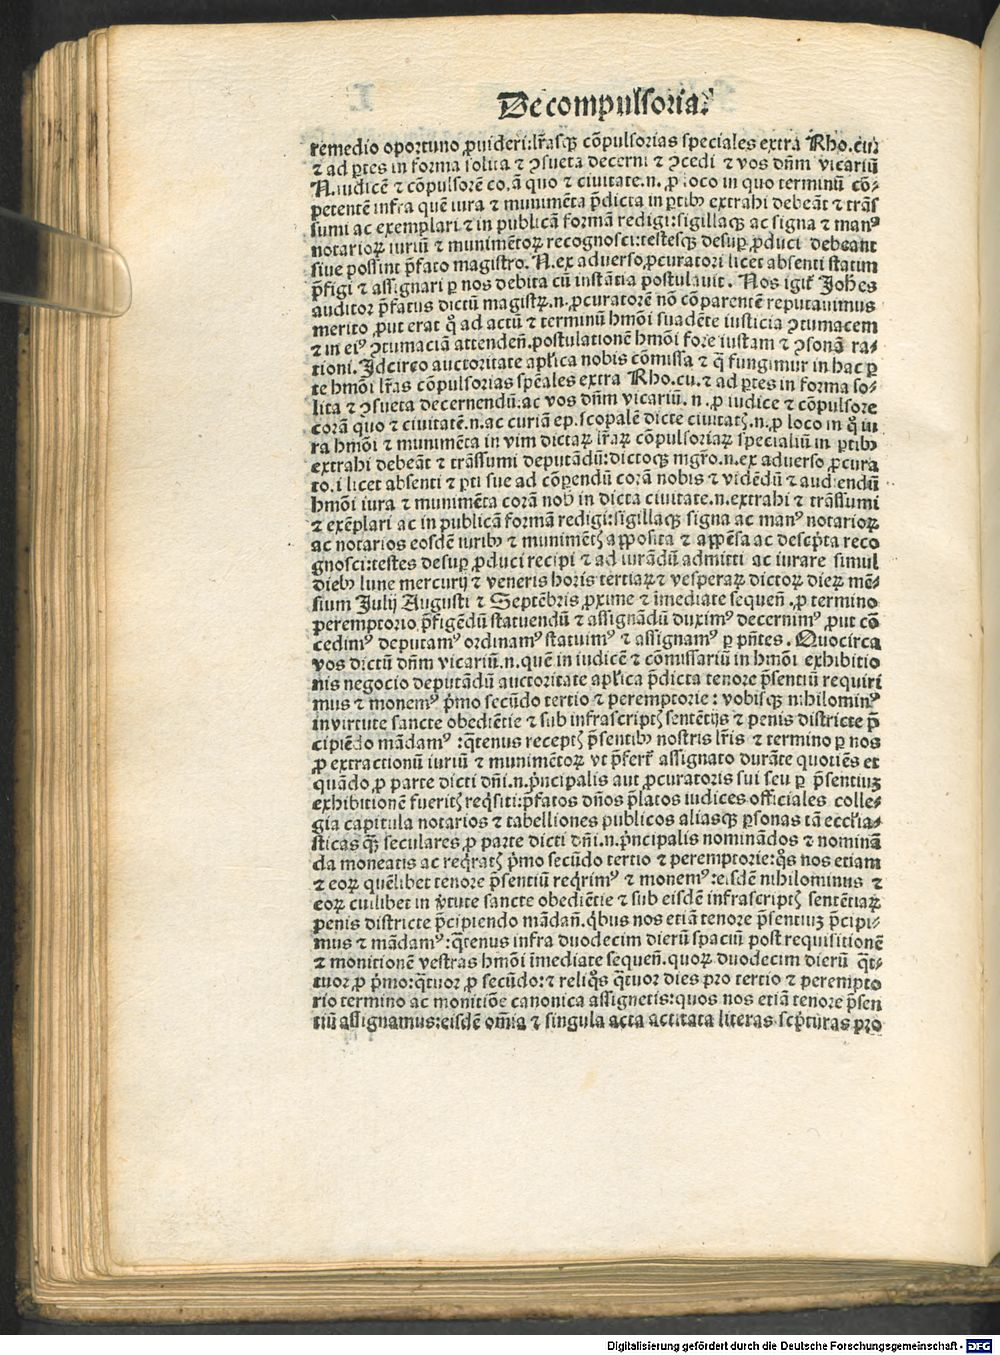 De compulsoriaꝝ
remedio oportuno ꝓuideri:lr̃asqꝫ cõpulsorias speciales extra Rho.cur̃
⁊ ad ꝑtes in forma solita ⁊ ꝯsueta decerni ⁊ ꝯcedi ⁊ vos dñm vicariũ
N.iudicẽ ⁊ cõpulsorẽ corã quo ⁊ ciuitatẽ.n. ꝓ loco in quo terminũ cõ-
petentẽ infra quẽ iura ⁊ munimẽta p̃dicta in ꝑtibꝰ extrahi debeãt ⁊ trãs
sumi ac exemplari ⁊ in publicã formã redigi:sigillaqꝫ ac signa ⁊ manꝰ
notarioꝝ iuriũ ⁊ munimẽtoꝝ recognosci:testesqꝫ desuꝑ ꝓduci debeant
siue possint p̃fato magistro. N.ex aduerso ꝓcuratori licet absenti statim
p̃figi ⁊ assignari ꝑ nos debita cũ instãtia postulauit. Nos igit᷑ Joh̃es
auditor p̃fatus dictũ magistꝝ.n.ꝓcuratorẽ nõ cõparentẽ reputauimus
merito ꝓut erat ꝙ ad actũ ⁊ terminũ hmõi suadẽte iusticia ꝯtumacem
⁊ in eiꝰ ꝯtumaciã attendeñ.postulationẽ hmõi fore iustam ⁊ ꝯsonã ra-
tioni. Jdcirco auctoritate apl̃ica nobis cõmissa ⁊ q̃ fungimur in hac ꝑ
te hmõi lr̃as cõpulsorias spẽales extra Rho.cu.⁊ ad ꝑtes in forma so-
lita ⁊ ꝯsueta decernendũ:ac vos dñm vicariũ.n.ꝓ iudice ⁊ cõpulsore
corã quo ⁊ ciuitatẽ.n.ac curiã episcopalẽ dicte ciuitatꝭ.n.ꝓ loco in q̊ iu
ra hmõi ⁊ munimẽta in vim dictaꝝ lr̃aꝝ cõpulsoriaꝝ specialiũ in ꝑtibꝰ
extrahi debeãt ⁊ trãssumi deputãdũ:dictoqꝫ mgr̃o.n.ex aduerso ꝓcura
to.i licet absenti ⁊ ꝑti sue ad cõꝑendũ corã nobis ⁊ vidẽdũ ⁊ audiendũ
hmõi iura ⁊ munimẽta corã nob̃ in dicta ciuitate.n.extrahi ⁊ trãssumi
⁊ exẽplari ac in publicã formã redigi:sigillaqꝫ signa ac manꝰ notarioꝝ
ac notarios eosdẽ iuribꝰ ⁊ munimẽtꝭ apposita ⁊ appẽsa ac descp̃ta reco
gnosci:testes desuꝑ ꝓduci recipi ⁊ ad iurãdũ admitti ac iurare simul
diebꝰ lune mercurij ⁊ veneris horis tertiaꝝ ⁊ vesperaꝝ dictoꝝ dieꝝ mẽ-
sium Julij Augusti ⁊ Septẽbris ꝓxime ⁊ ĩmediate sequeñ.ꝓ termino
peremptorio p̃figẽdũ statuendũ ⁊ assignãdũ duximꝰ decernimꝰ ꝓut cõ
cedimꝰ deputamꝰ ordinamꝰ statuimꝰ ⁊ assignamꝰ ꝑ pñtes. Quocirca
vos dictũ dñm vicariũ.n.quẽ in iudicẽ ⁊ cõmissariũ in hmõi exhibitio
nis negocio deputãdũ auctoritate apl̃ica p̃dicta tenore p̃sentiũ requiri
mus ⁊ monemꝰ p̃mo secũdo tertio ⁊ peremptorie: vobisqꝫ nihilominꝰ
in virtute sancte obediẽtie ⁊ sub infrascriptꝭ sentẽtijs ⁊ penis districte p̃
cipiẽdo mãdamꝰ :q̃tenus receptꝭ p̃sentibꝰ nostris lr̃is ⁊ termino ꝑ nos
ꝓ extractionũ iuriũ ⁊ munimẽtoꝝ vt p̃fert᷑ assignato durãte quotiẽs et
quãdo ꝓ parte dicti dñi.n.p̃ncipalis aut ꝓcuratoris sui seu ꝑ p̃sentiuꝫ
exhibitionẽ fueritꝭ req̃siti:p̃fatos dños p̃latos iudices officiales colle-
gia capitula notarios ⁊ tabelliones publicos aliasqꝫ ꝑsonas tã eccl̃ia-
sticas q̃ꝫ seculares ꝓ parte dicti dñi.n.p̃ncipalis nominãdos ⁊ nominã
da moneatis ac req̃ratꝭ p̃mo secũdo tertio ⁊ peremptorie:q̃s nos etiam
⁊ eoꝝ quẽlibet tenore p̃sentiũ req̃rimꝰ ⁊ monemꝰ:eisdẽ nihilominus ⁊
eoꝝ cuilibet in ṽtute sancte obediẽtie ⁊ sub eisdẽ infrascriptꝭ sentẽtiaꝝ
penis districte p̃cipiendo mãdañ.q̃bus nos etiã tenore p̃sentiuꝫ p̃cipi-
mus ⁊ mãdamꝰ:q̃tenus infra duodecim dierũ spaciũ post requisitionẽ
⁊ monitionẽ vestras hmõi ĩmediate sequeñ.quoꝝ duodecim dierũ q̃t-
tuor ꝓ p̃mo:q̃tuor ꝓ secũdo:⁊ reliq̃s q̃tuor dies pro tertio ⁊ perempto
rio termino ac monitiõe canonica assignetis:quos nos etiã tenore p̃sen
tiũ assignamus:eisdẽ om̃ia ⁊ singula acta actitata literas scp̃turas pro
Digitalisierung gefördert durch die Deutsche Forschungsgemeinschaft - DFG